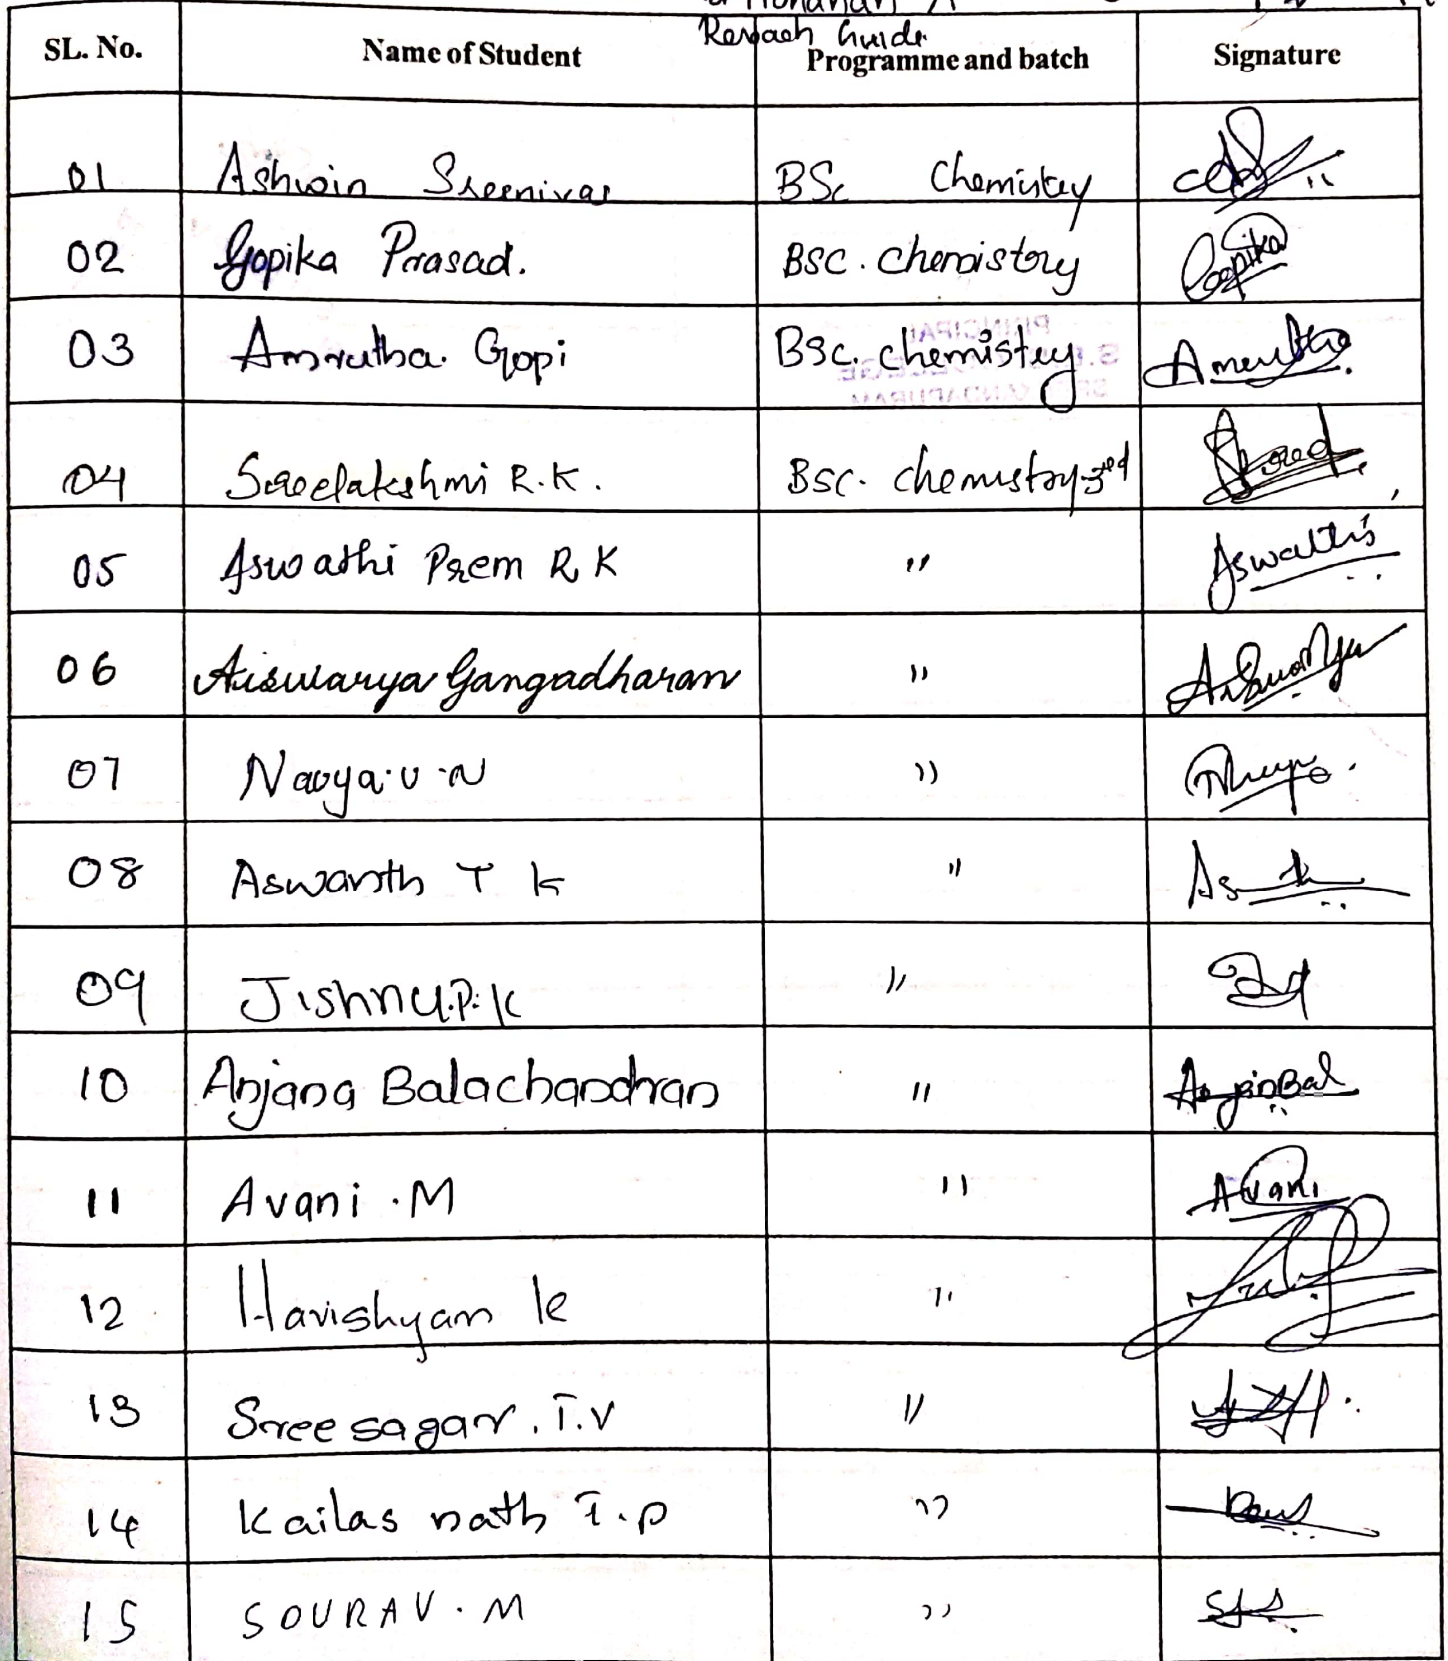 Mohanan A
Research Guide
SL. No. Name of Student Programme and batch Signature
01 Ashwin Sreenivas BSc Chemistry
02 Gopika Prasad. BSC. Chemistry Gopika
03 Amrutha. Gopi BSc. chemistry Amrutha
04 Sreelakshmi R.K. BSC. chemistry 3rd Sreed
05 Aswathi Prem R K " Aswathi
06 Aiswarya Gangadharan " Aiswarya
07 Navya.U.N "
08 Aswanth T K "
09 Jishnu.P.K "
10 Anjana Balachandran " AnjanBal
11 Avani .M " Avani
12 Havishyam K "
13 Sreesagar. T.V "
14 Kailas nath T.P "
15 SOURAV. M "